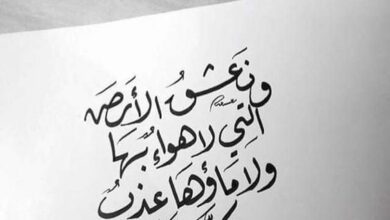 ونَعشقُ الأرضَ
التِي لا هواءٌ بِهَا
ولا مَاؤهَا عذبٌ